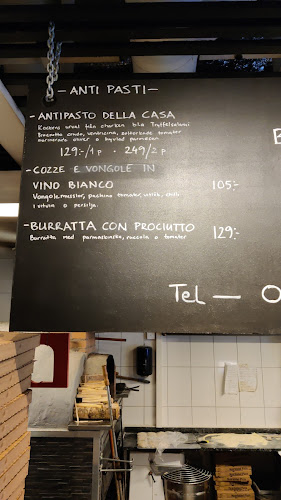 - ANTI PASTI -
- ANTIPASTO DELLA CASA
Kockens urval från charken bla Tryffelsalami
Bresaola cruda, ventricina, soltorkade tomater
marinerade oliver & hyvlad parmesan
129:-/1 p · 249/2 p
- COZZE E VONGOLE IN
VINO BIANCO 105:-
Vongole, musslor, pachino tomater, vitlök, chili
i vitvin & persilja.
- BURRATA CON PROCIUTTO 129:-
Burratta med parmaskinka, ruccola & tomater
Tel — 0